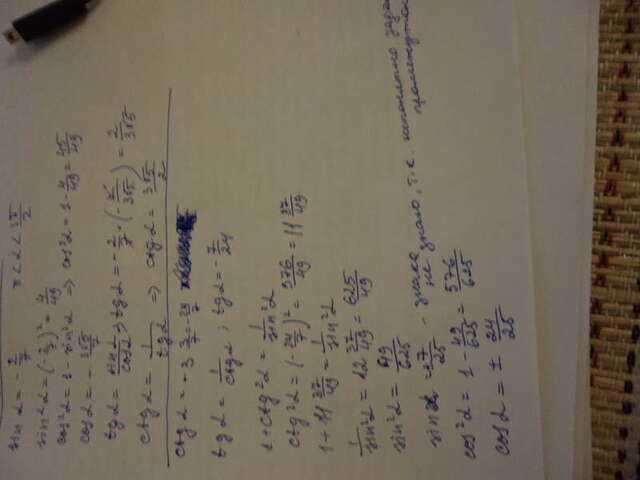 sin α = - 2/7 π < α < 3π/2
sin²α = (- 2/7)² = 4/49
cos²α = 1 - sin²α ⇒ cos²α = 1 - 4/49 = 45/49
cos α = - 3√5/7
tg α = sin α/cos α; tg α = - 2/7 · (- 7/3√5) = 2/3√5
ctg α = 1/tg α ⇒ ctg α = 3√5/2
ctg α = - 3 3/7 = - 24/7
tg α = 1/ctg α; tg α = - 7/24
1 + ctg²α = 1/sin²α
ctg²α = (- 24/7)² = 576/49 = 11 37/49
1 + 11 37/49 = 1/sin²α
1/sin²α = 12 37/49 = 625/49
sin²α = 49/625
sin α = 7/25 - знака не знаю, т.к. непонятно
cos²α = 1 - 49/625 = 576/625
cos α = ± 24/25